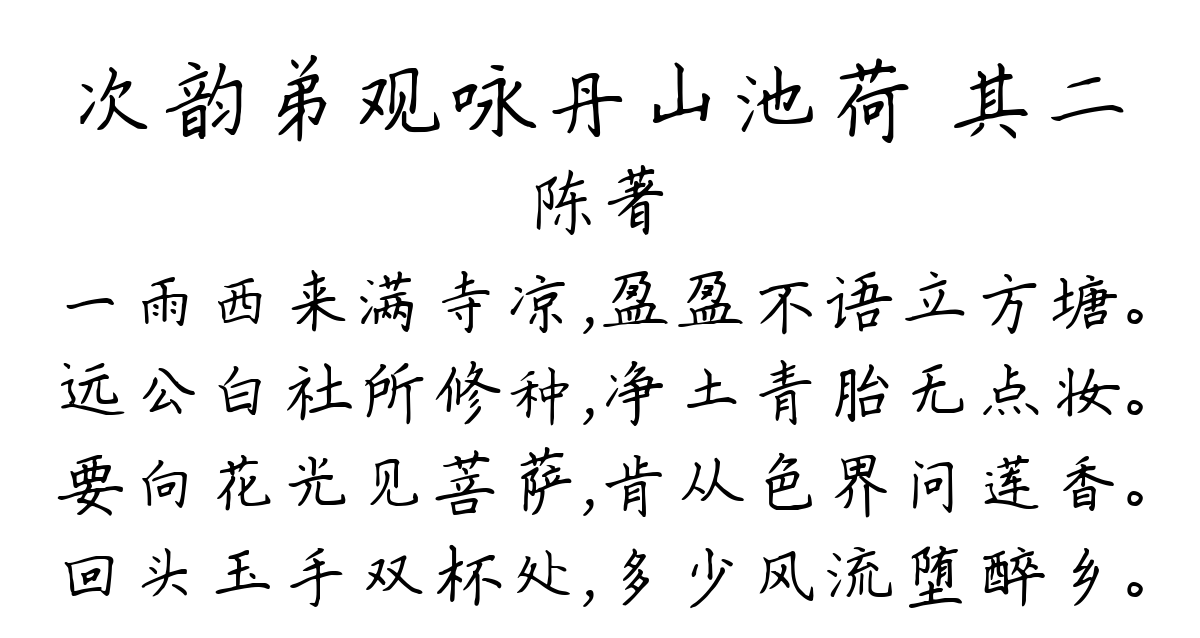 次韵弟观咏丹山池荷 其二
陈著
一雨西来满寺凉,盈盈不语立方塘。
远公白社所修种,净土青胎无点妆。
要向花光见菩萨,肯从色界问莲香。
回头玉手双杯处,多少风流堕醉乡。